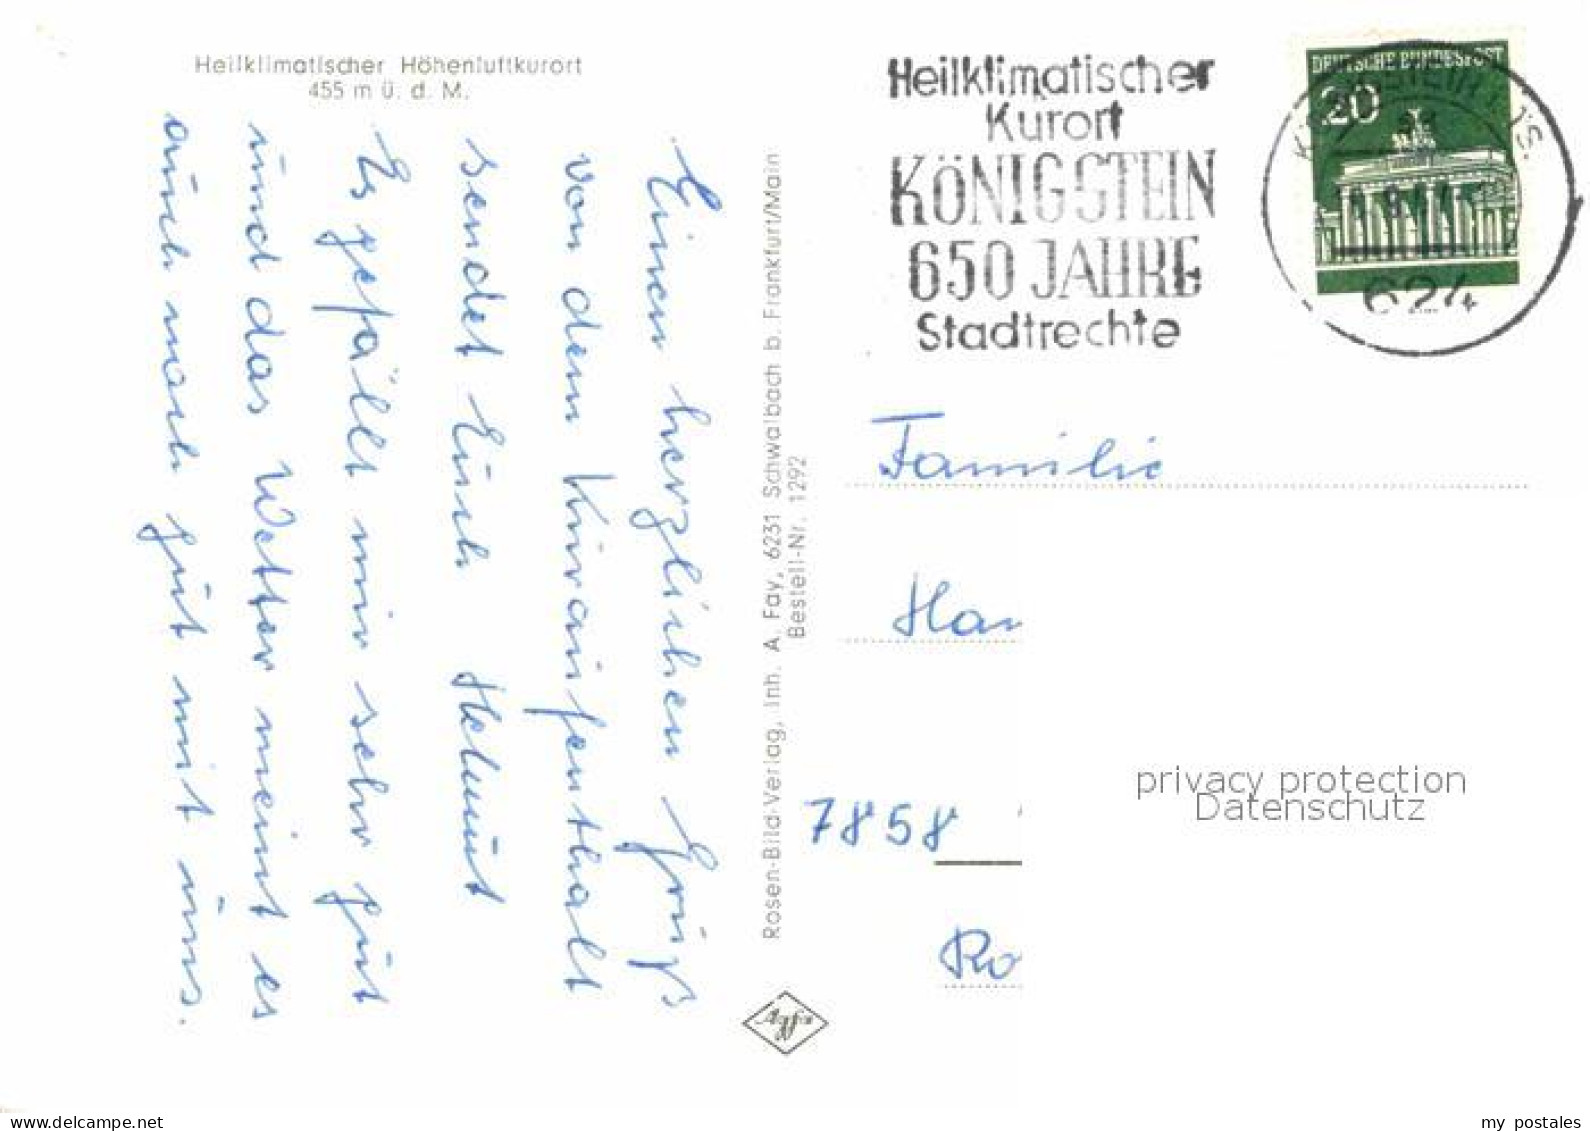 Heilklimatischer Höhenluftkurort
455 m ü. d. M.
Einen herzlichen Gruß
von dem Kuraufenthalt
sendet Euch Helmut
Es gefällt mir sehr gut
und das Wetter meint es
auch noch gut mit uns.
Rosen-Bild-Verlag, Inh. A. Fay, 6231 Schwalbach b. Frankfurt/Main
Bestell-Nr. 1292
Agfa
Heilklimatischer
Kurort
KÖNIGSTEIN
650 JAHRE
Stadtrechte
DEUTSCHE BUNDESPOST
20
624
Familie
Han
7858
Ro
privacy protection
Datenschutz
www.delcampe.net
my_postales